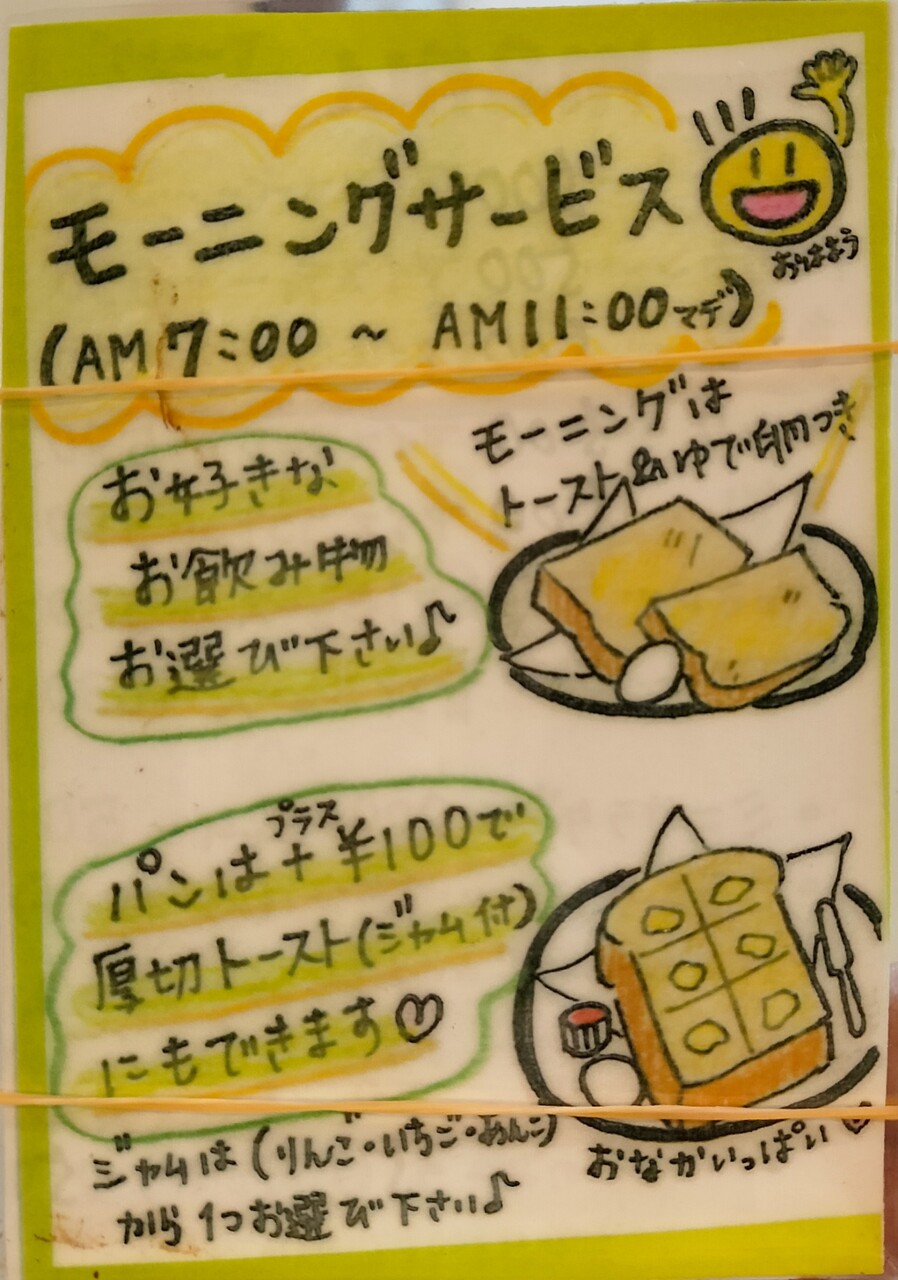 モーニングサービス
おはよう
(AM 7:00 ~ AM 11:00マデ)
モーニングは
トースト&ゆで卵つき
お好きな
お飲み物
お選び下さい♪
プラス
パンは+¥100で
厚切トースト(ジャム付)
にもできます♡
ジャムは(りんご・いちご・あんこ)
から1つお選び下さい♪
おなかいっぱい♡